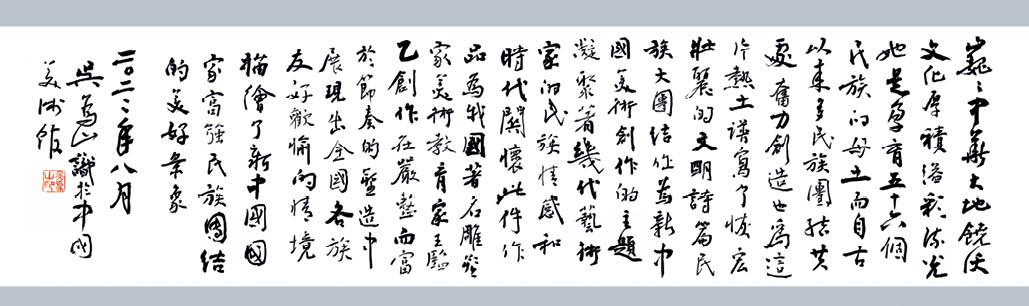 巍巍中華大地饒沃
文化厚積溢彩流光
她是孕育五十六個
民族的母土而自古
以來多民族團結共
處奮力創造也為這
片熱土譜寫了恢宏
壯麗的文明詩篇民
族大團結作為新中
國美術創作的主題
凝聚著幾代藝術
家的民族情感和
時代關懷此件作
品為我國著名雕塑
家美術教育家王臨
乙創作在嚴整而富
於節奏的塑造中
展現出全國各族
友好歡愉的情境
描繪了新中國國
家富強民族團結
的美好景象
二〇二二年八月
吳為山識於中國
美術館